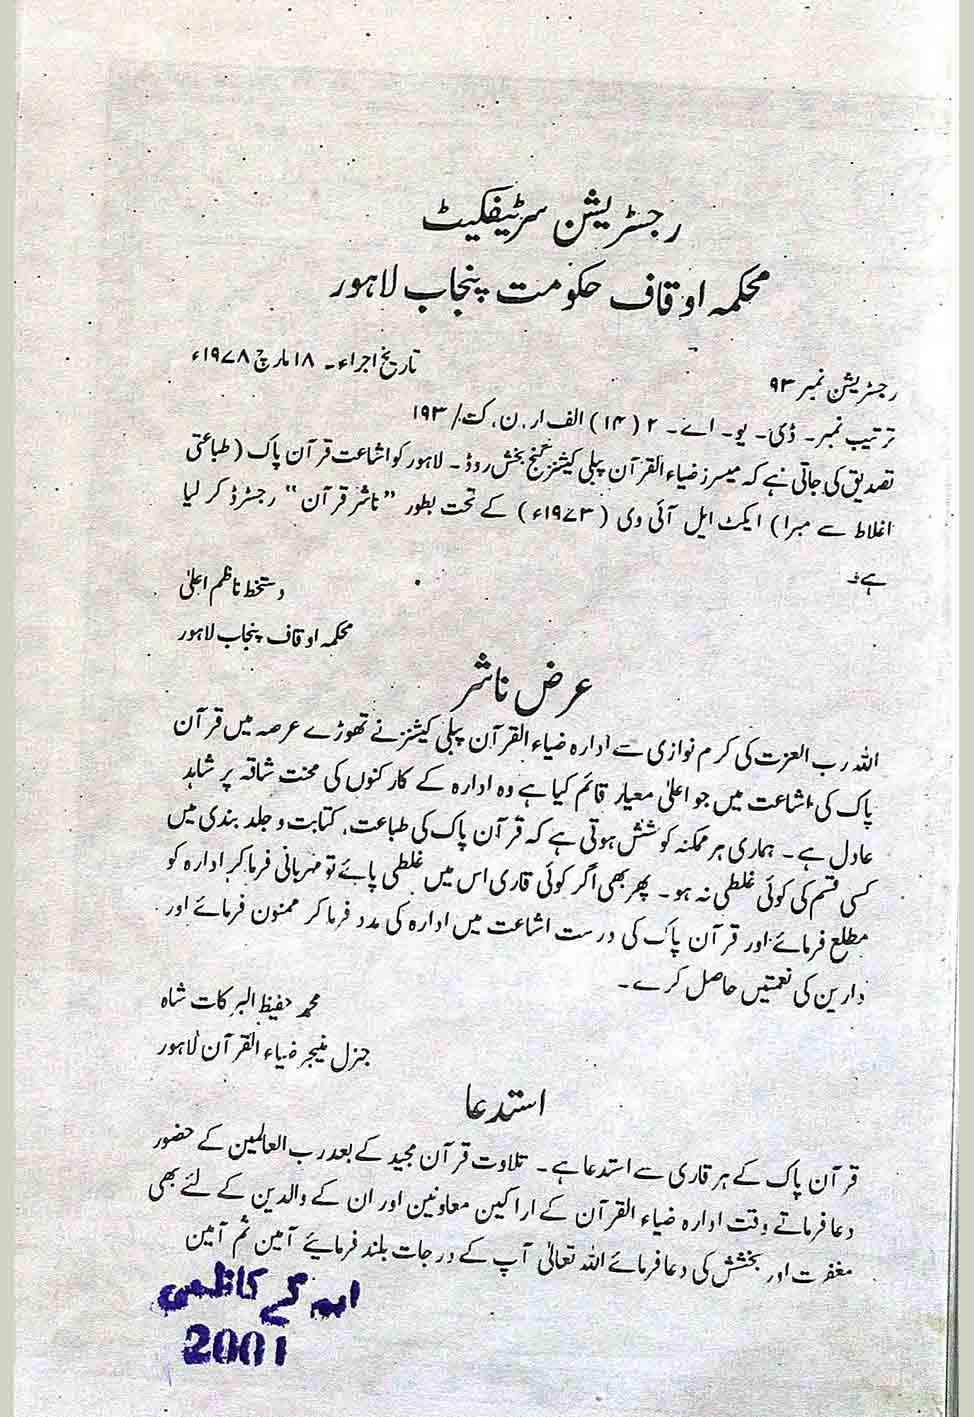 رجسٹریشن سرٹیفکیٹ
محکمہ اوقاف حکومت پنجاب لاہور
رجسٹریشن نمبر ۹۳ تاریخ اجراء۔ ۱۸ مارچ ۱۹۷۸ء
ترتیب نمبر۔ ڈی۔ یو۔ اے۔ ۲ (۱۴) الف ار، ن، ک ت/ ۱۹۳
تصدیق کی جاتی ہے کہ میسرز ضیاء القرآن پبلی کیشنز گنج بخش روڈ۔ لاہور کو اشاعت قرآن پاک (طباعتی
اغلاط سے مبرا) ایکٹ ایل آئی وی (۱۹۷۳ء) کے تحت بطور "ناشر قرآن" رجسٹرڈ کر لیا
ہے۔
دستخط ناظم اعلیٰ
محکمہ اوقاف پنجاب لاہور
عرض ناشر
اللہ رب العزت کی کرم نوازی سے ادارہ ضیاء القرآن پبلی کیشنز نے تھوڑے عرصہ میں قرآن
پاک کی اشاعت میں جو اعلیٰ معیار قائم کیا ہے وہ ادارہ کے کارکنوں کی محنت شاقہ پر شاہد
عادل ہے۔ ہماری ہر ممکنہ کوشش ہوتی ہے کہ قرآن پاک کی طباعت، کتابت و جلد بندی میں
کسی قسم کی کوئی غلطی نہ ہو۔ پھر بھی اگر کوئی قاری اس میں غلطی پائے تو مہربانی فرما کر ادارہ کو
مطلع فرمائے اور قرآن پاک کی درست اشاعت میں ادارہ کی مدد فرما کر ممنون فرمائے اور
دارین کی نعمتیں حاصل کرے۔
محمد حفیظ البرکات شاہ
جنرل منیجر ضیاء القرآن لاہور
استدعا
قرآن پاک کے ہر قاری سے استدعا ہے۔ تلاوت قرآن مجید کے بعد رب العالمین کے حضور
دعا فرماتے وقت ادارہ ضیاء القرآن کے اراکین معاونین اور ان کے والدین کے لئے بھی
مغفرت اور بخشش کی دعا فرمائے اللہ تعالیٰ آپ کے درجات بلند فرمایئے آمین ثم آمین
ایم کے کاظمی
2001